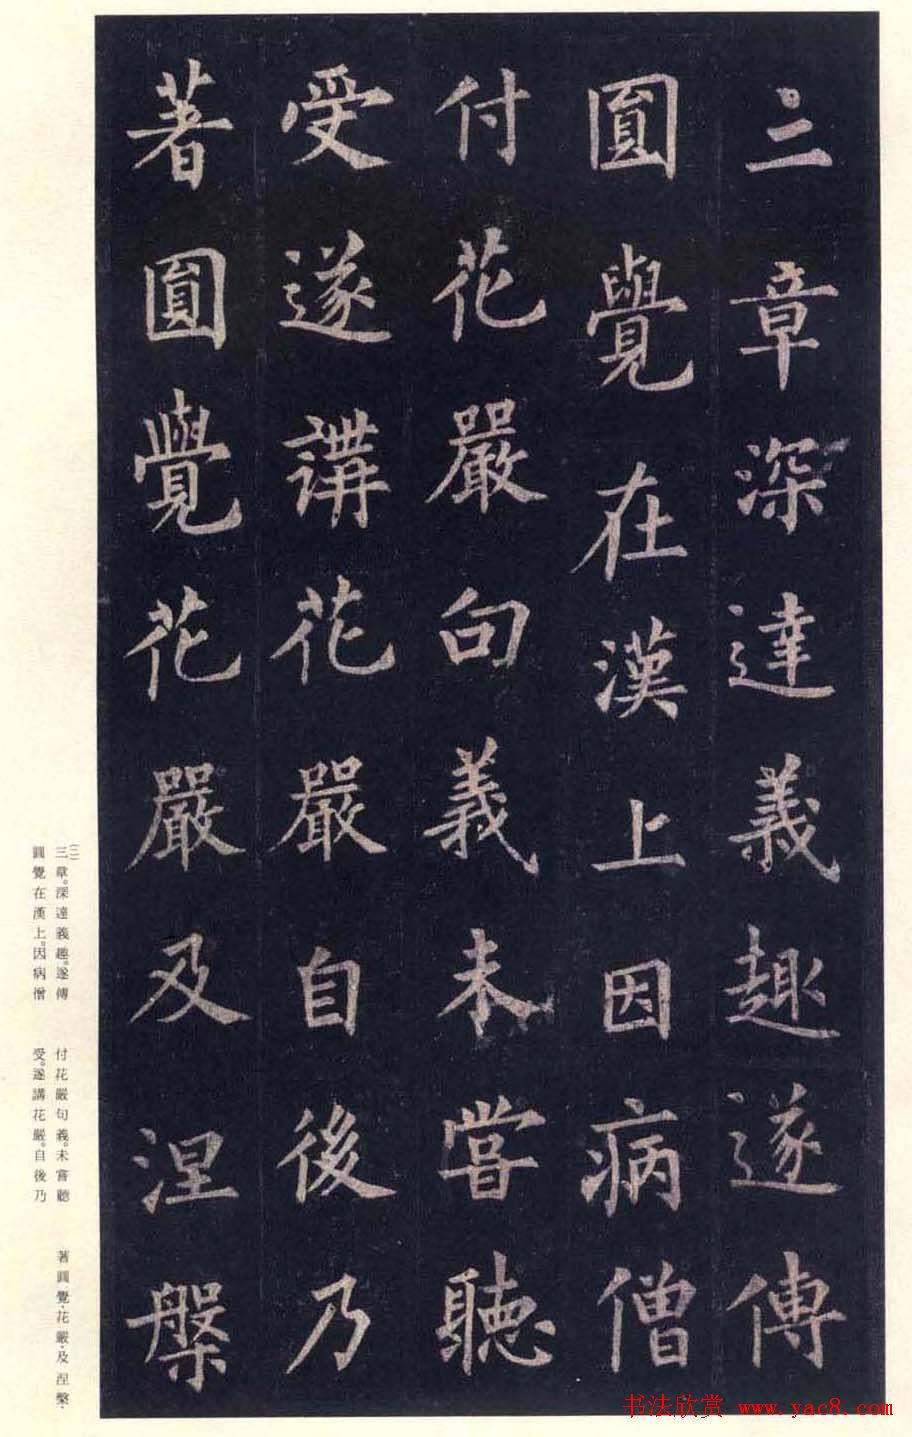 三章深達義趣遂傳
圓覺在漢上因病僧
付花嚴句義未嘗聽
受遂講花嚴自後乃
著圓覺花嚴及涅槃
(二)
三章。深達義趣。遂傳
圓覺在漢上。因病僧
付花嚴句義。未嘗聽
受。遂講花嚴。自後乃
著圓覺·花嚴·及涅槃·
书法欣赏 www.yac8.com